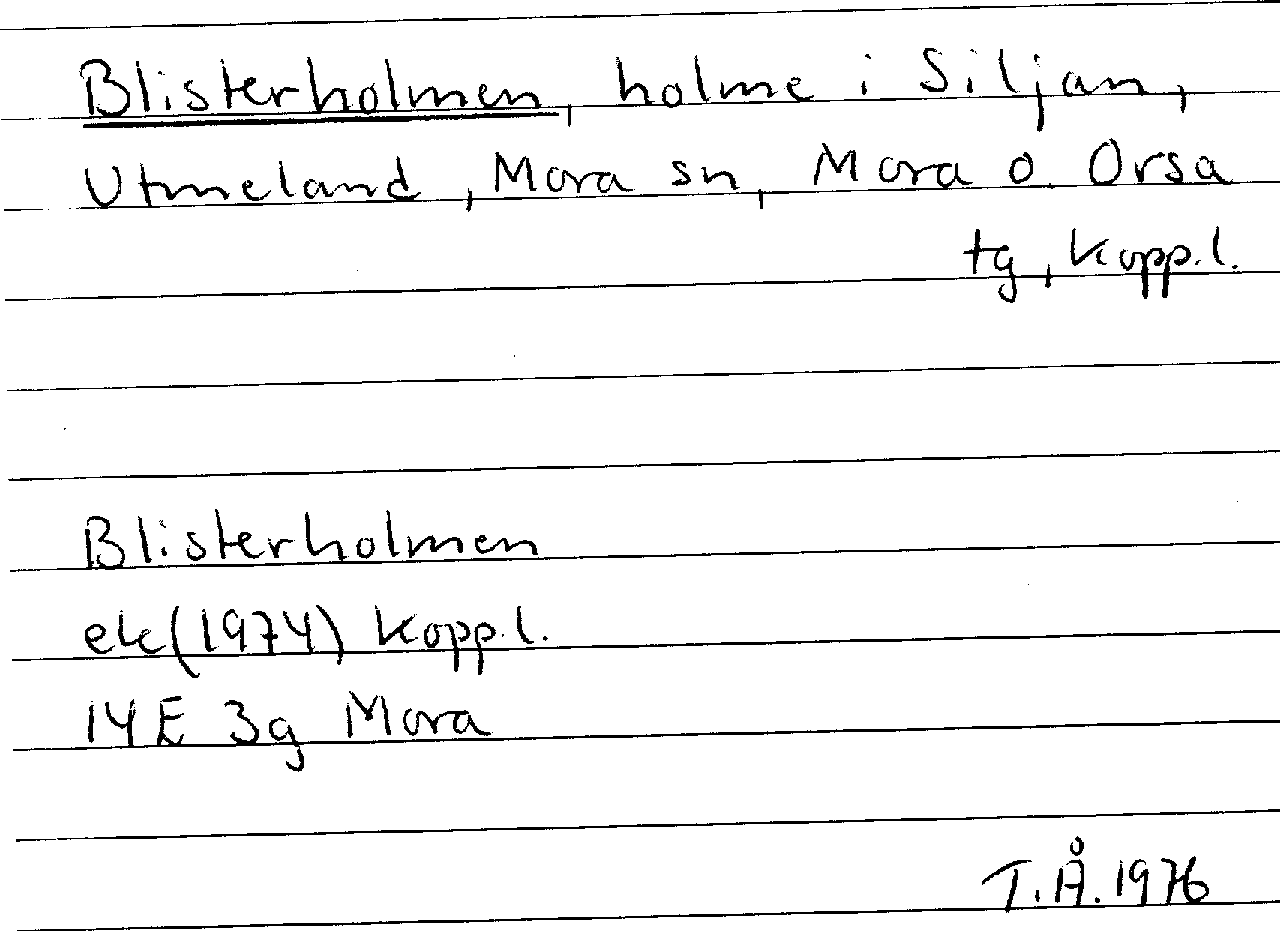 Blisterholmen, holme i Siljan,
Utmeland, Mora sn, Mora o. Orsa
tg, Kopp.l.
Blisterholmen
ek(1974) Kopp.l.
14E 3g Mora
T.Å.1976